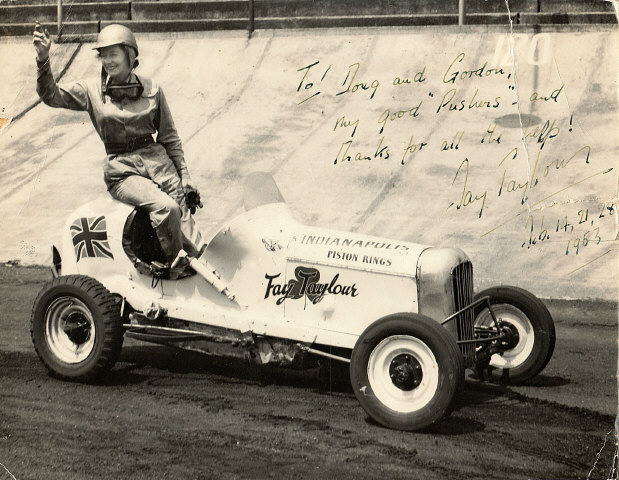 To! Doug and Gordon,
my good "Pushers" - and
Thanks for all the help!
Fay Taylour
Feb. 14, 21, 28
1953
INDIANAPOLIS
PISTON RINGS
Fay Taylour